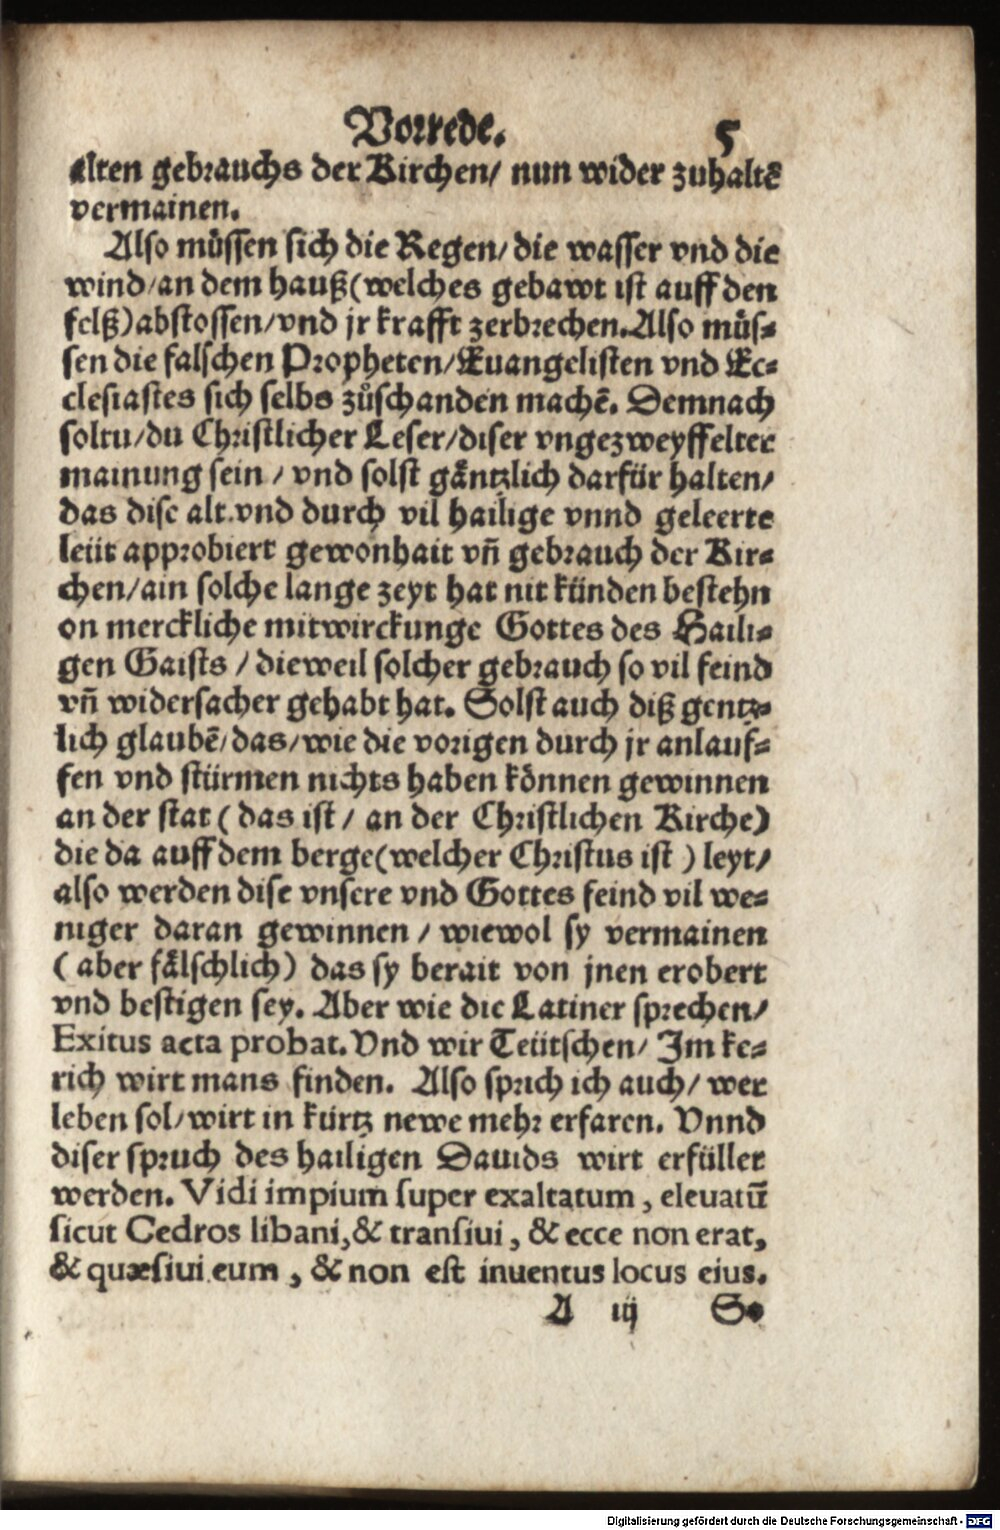 Vorrede. 5
alten gebrauchs der Kirchen/ nun wider zuhaltẽ
vermainen.
Also můssen sich die Regen/ die wasser vnd die
wind/ an dem hauß (welches gebawt ist auff den
felß) abstossen/ vnd jr krafft zerbrechen. Also můs-
sen die falschen Propheten/ Euangelisten vnd Ec-
clesiastes sich selbs zůschanden machẽ. Demnach
soltu/ du Christlicher Leser/ diser vngezweyffelter
mainung sein / vnd solst gäntzlich darfür halten/
das dise alt vnd durch vil hailige vnnd geleerte
leüt approbiert gewonhait vñ gebrauch der Kir-
chen/ ain solche lange zeyt hat nit künden bestehn
on merckliche mitwirckunge Gottes des Haili-
gen Gaists / dieweil solcher gebrauch so vil feind
vñ widersacher gehabt hat. Solst auch diß gentz-
lich glaubẽ/ das/ wie die vorigen durch jr anlauf-
fen vnd stürmen nichts haben können gewinnen
an der stat ( das ist / an der Christlichen Kirche)
die da auff dem berge (welcher Christus ist ) leyt/
also werden dise vnsere vnd Gottes feind vil we-
niger daran gewinnen / wiewol sy vermainen
( aber fälschlich) das sy berait von jnen erobert
vnd bestigen sey. Aber wie die Latiner sprechen/
Exitus acta probat. Vnd wir Teütschen/ Im ke-
rich wirt mans finden. Also sprich ich auch/ wer
leben sol/ wirt in kürtz newe mehr erfaren. Vnnd
diser spruch des hailigen Dauids wirt erfüllet
werden. Vidi impium super exaltatum, eleuatũ
sicut Cedros libani, & transiui, & ecce non erat,
& quæsiui eum, & non est inuentus locus eius.
A iij So
Digitalisierung gefördert durch die Deutsche Forschungsgemeinschaft - DFG